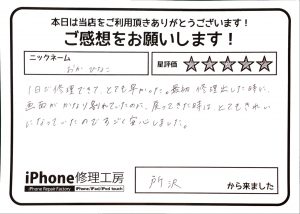 本日は当店をご利用頂きありがとうございます！
ご感想をお願いします！
ニックネーム
おか ひなこ
星評価
★★★★★
1日で修理できて、とても早かった。最初 修理出した時に、
画面が かなり割れていたのに、戻ってきた時は、とてもきれい
になっていたのですごく安心しました。
iPhone修理工房
iPhone Repair Factory
iPhone/iPad/iPod touch
所沢
から来ました